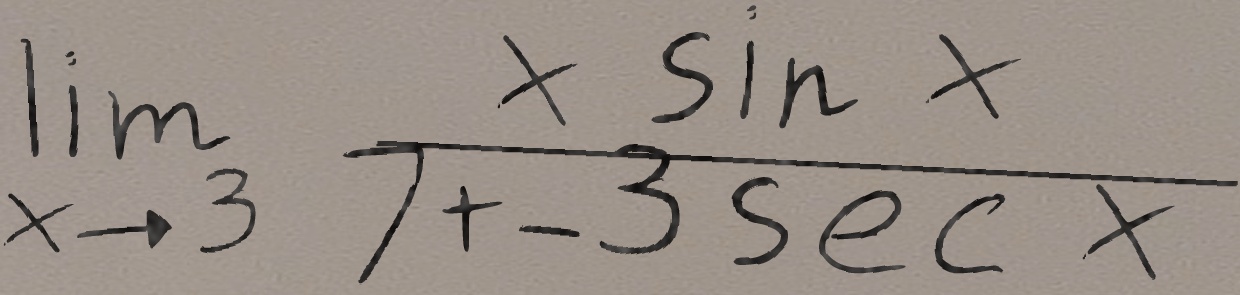 lim x→3 (x sin x)/(7+-3 sec x)